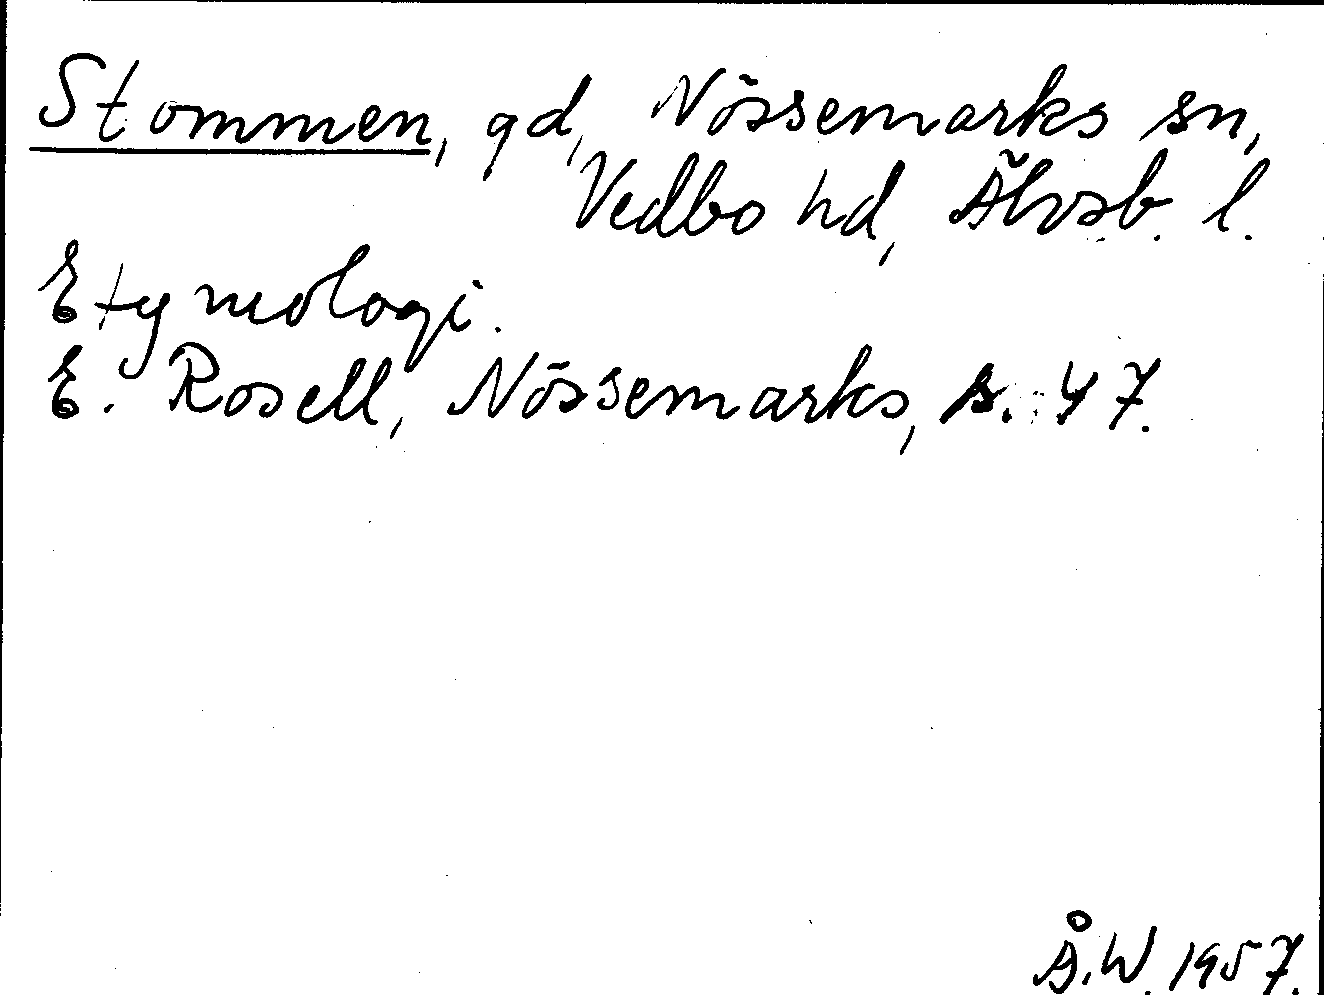 Stommen, gd, Nössemarks sn,
Vedbo hd, Älvsb. l.
Etymologi.
E. Rosell, Nössemarks, s. 47.
Å.W. 1957.